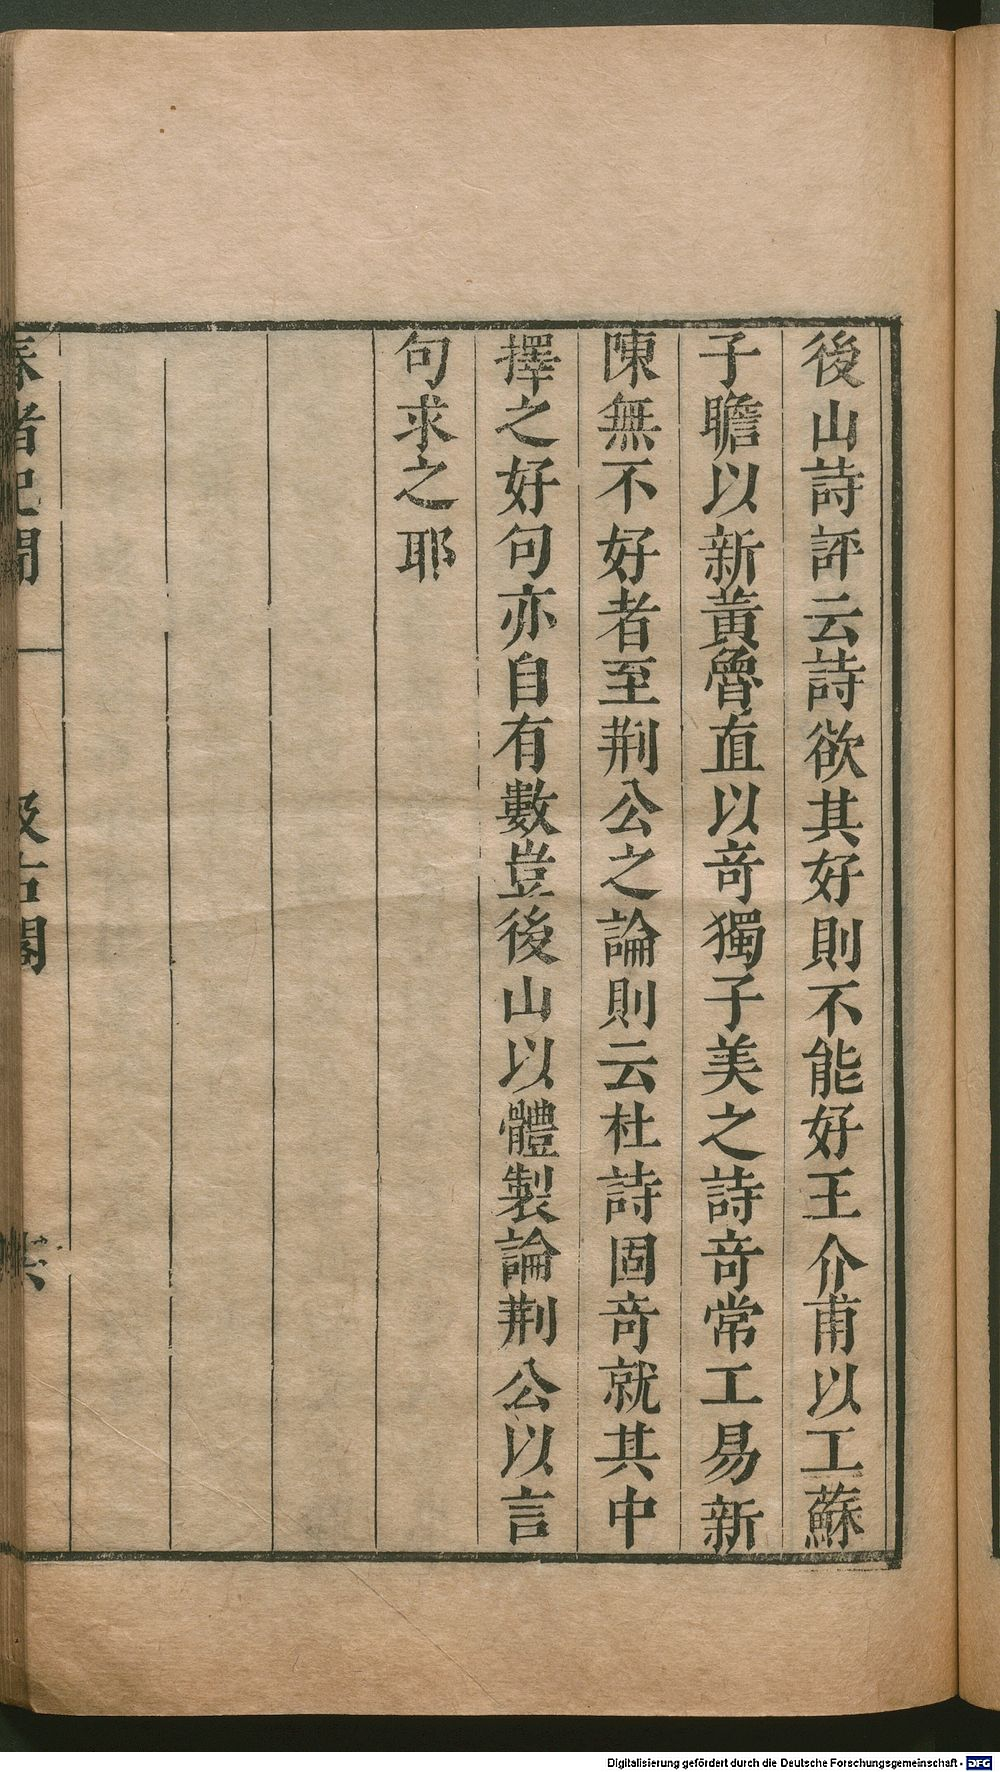 後山詩評云詩欲其好則不能好王介甫以工蘇
子瞻以新黃魯直以奇獨子美之詩奇常工易新
陳無不好者至荆公之論則云杜詩固奇就其中
擇之好句亦自有數豈後山以體製論荆公以言
句求之耶
春渚紀聞
汲古閣
Digitalisierung gefördert durch die Deutsche Forschungsgemeinschaft - DFG